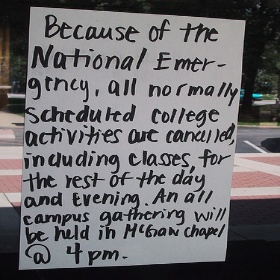 Because of the
National Emer-
gency, all normally
scheduled college
activities are cancelled,
including classes, for
the rest of the day
and Evening. An all
campus gathering will
be held in McGaw chapel
@ 4 pm.